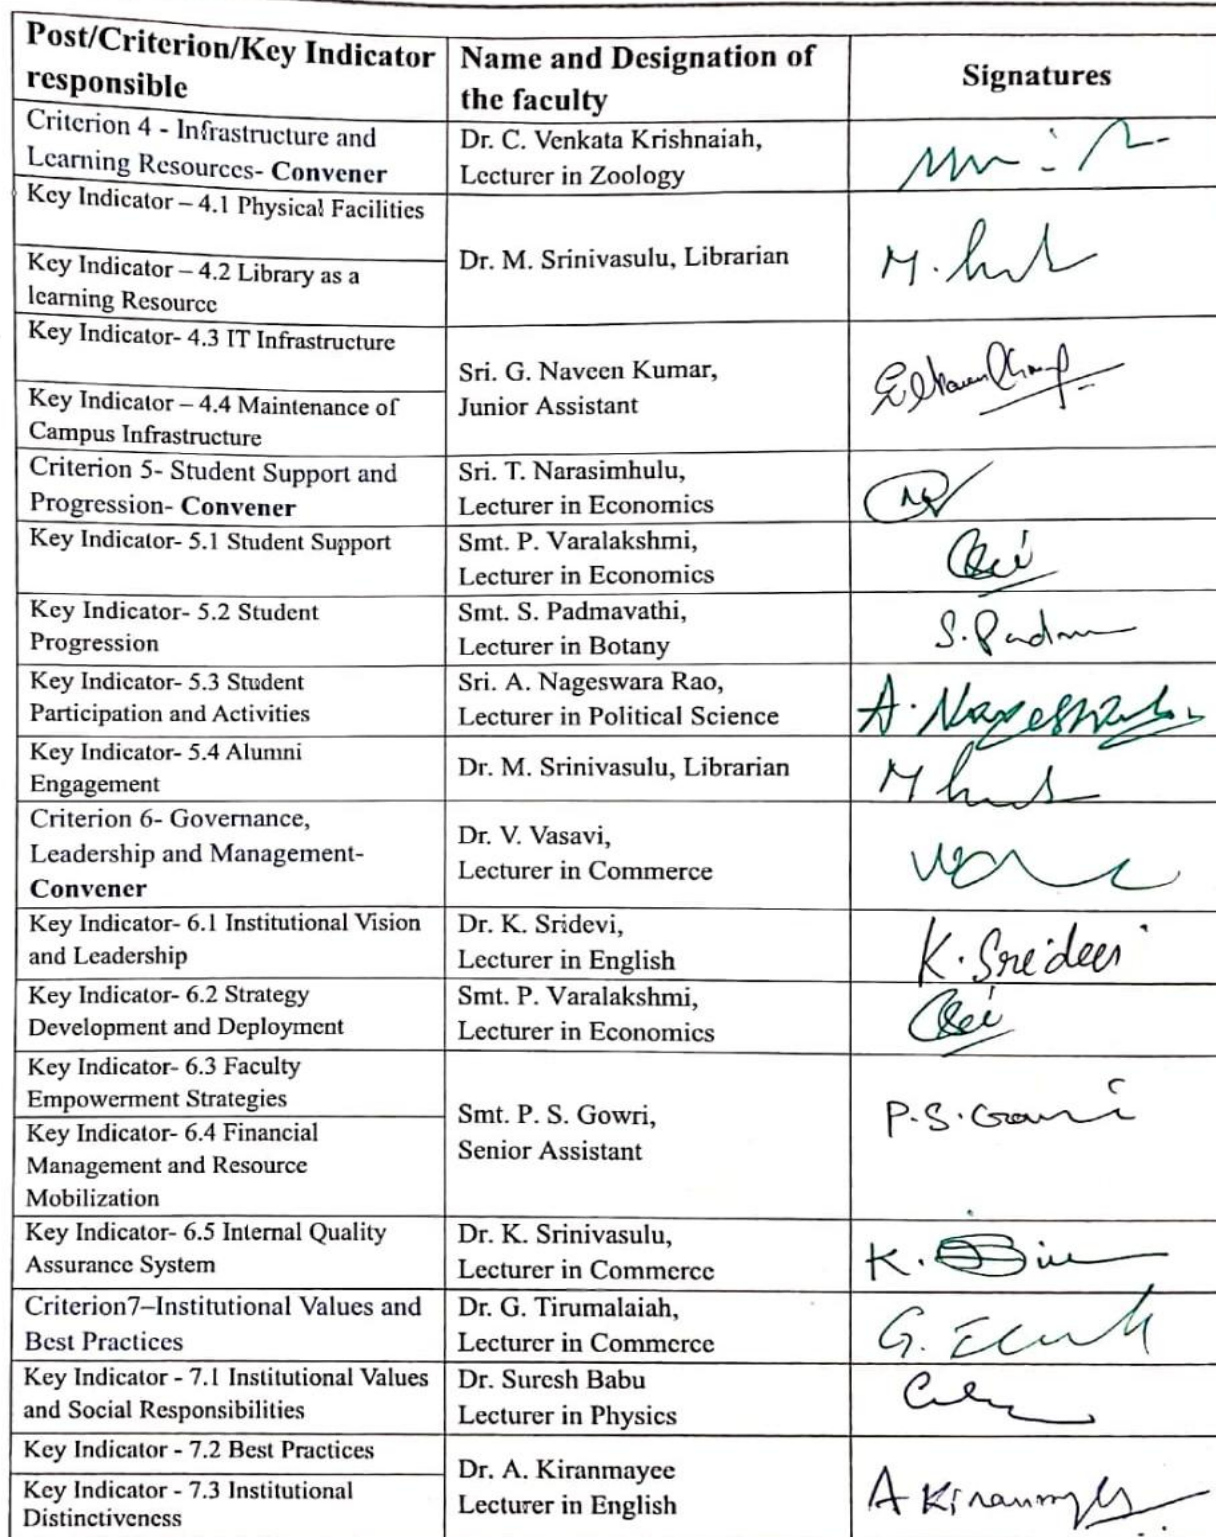 Post/Criterion/Key Indicator
responsible
Name and Designation of
the faculty
Signatures
Criterion 4 - Infrastructure and
Learning Resources- Convener
Dr. C. Venkata Krishnaiah,
Lecturer in Zoology
Key Indicator – 4.1 Physical Facilities
Key Indicator – 4.2 Library as a
learning Resource
Dr. M. Srinivasulu, Librarian
Key Indicator- 4.3 IT Infrastructure
Key Indicator – 4.4 Maintenance of
Campus Infrastructure
Sri. G. Naveen Kumar,
Junior Assistant
Criterion 5- Student Support and
Progression- Convener
Sri. T. Narasimhulu,
Lecturer in Economics
Key Indicator- 5.1 Student Support
Smt. P. Varalakshmi,
Lecturer in Economics
Key Indicator- 5.2 Student
Progression
Smt. S. Padmavathi,
Lecturer in Botany
Key Indicator- 5.3 Student
Participation and Activities
Sri. A. Nageswara Rao,
Lecturer in Political Science
Key Indicator- 5.4 Alumni
Engagement
Dr. M. Srinivasulu, Librarian
Criterion 6- Governance,
Leadership and Management-
Convener
Dr. V. Vasavi,
Lecturer in Commerce
Key Indicator- 6.1 Institutional Vision
and Leadership
Dr. K. Sridevi,
Lecturer in English
K. Sridevi
Key Indicator- 6.2 Strategy
Development and Deployment
Smt. P. Varalakshmi,
Lecturer in Economics
Key Indicator- 6.3 Faculty
Empowerment Strategies
Key Indicator- 6.4 Financial
Management and Resource
Mobilization
Smt. P. S. Gowri,
Senior Assistant
P.S. Gowri
Key Indicator- 6.5 Internal Quality
Assurance System
Dr. K. Srinivasulu,
Lecturer in Commerce
Criterion7–Institutional Values and
Best Practices
Dr. G. Tirumalaiah,
Lecturer in Commerce
Key Indicator - 7.1 Institutional Values
and Social Responsibilities
Dr. Suresh Babu
Lecturer in Physics
Key Indicator - 7.2 Best Practices
Key Indicator - 7.3 Institutional
Distinctiveness
Dr. A. Kiranmayee
Lecturer in English